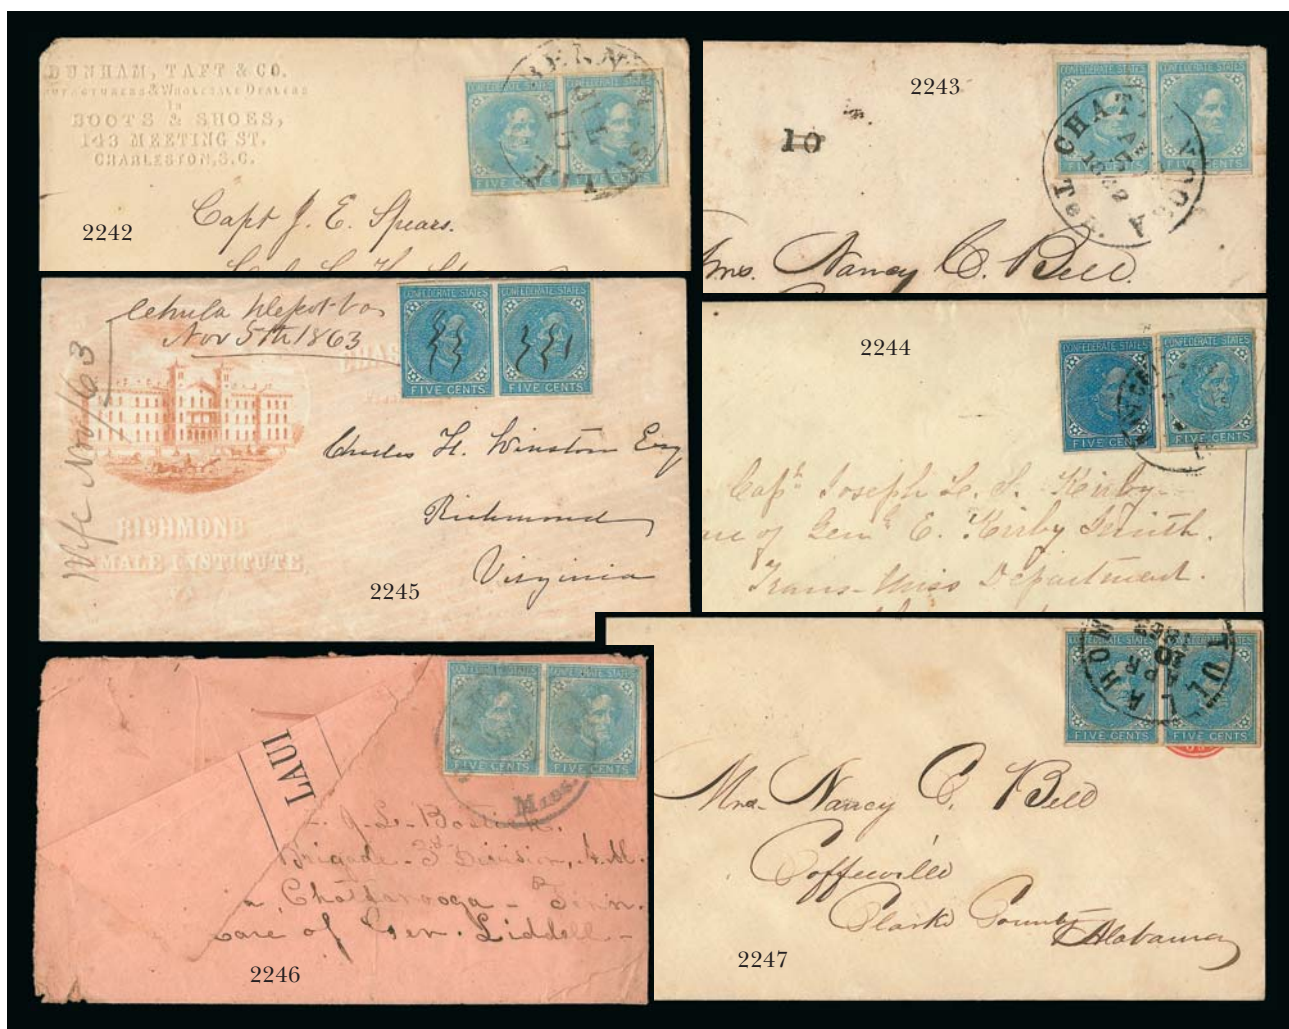 DUNHAM, TAFT & CO.
MANUFACTURERS & WHOLESALE DEALERS
In
BOOTS & SHOES,
143 MEETING ST.
CHARLESTON, S.C.
CONFEDERATE STATES
FIVE CENTS
CONFEDERATE STATES
FIVE CENTS
15
Capt J. E. Spears.
2242
2243
10
CONFEDERATE STATES
FIVE CENTS
CONFEDERATE STATES
FIVE CENTS
CHATTANOOGA
1862
Ten.
Mrs. Nancy C. Bell.
Depot Va
Nov 5th 1863
Nov/63
CONFEDERATE STATES
FIVE CENTS
CONFEDERATE STATES
FIVE CENTS
Charles H. Winston Esq
Richmond
Virginia
RICHMOND
MALE INSTITUTE,
VA
2245
2244
CONFEDERATE STATES
FIVE CENTS
CONFEDERATE STATES
FIVE CENTS
Capt Joseph L. S. Kirby
of Genl E. Kirby Smith.
Trans-Miss Department.
LAUI
CONFEDERATE STATES
FIVE CENTS
CONFEDERATE STATES
FIVE CENTS
Miss.
J. L. Bostick.
Brigade 3d Division, A.M.
Chattanooga - Tenn.
care of Gen. Liddell -
2246
CONFEDERATE STATES
FIVE CENTS
CONFEDERATE STATES
FIVE CENTS
TULLAHOMA
APR
20
1863
Mrs. Nancy C. Bell
Coffeeville
Clarke County
Alabama
2247